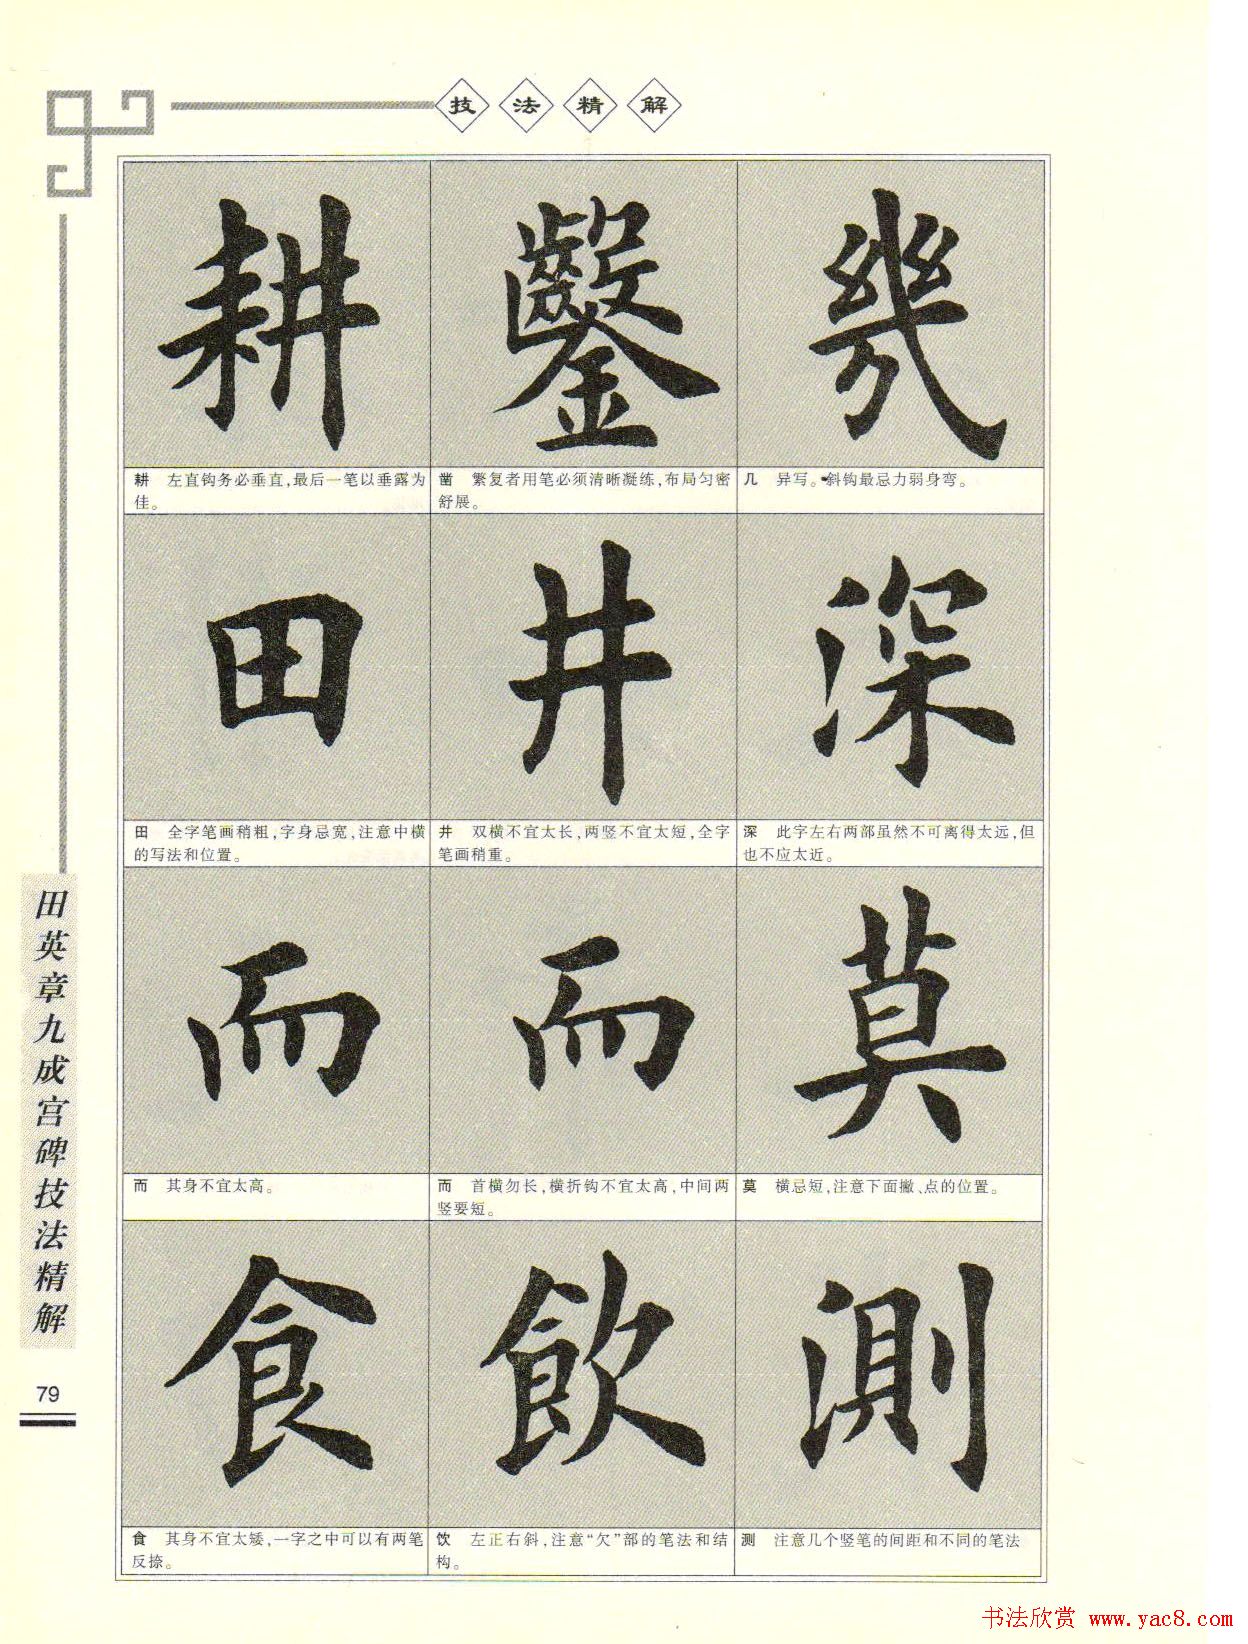 技法精解
耕 鑿 幾
耕 左直钩务必垂直,最后一笔以垂露为
佳。
凿 繁复者用笔必须清晰凝练,布局匀密
舒展。
几 异写。斜钩最忌力弱身弯。
田 井 深
田 全字笔画稍粗,字身忌宽,注意中横
的写法和位置。
井 双横不宜太长,两竖不宜太短,全字
笔画稍重。
深 此字左右两部虽然不可离得太远,但
也不应太近。
而 而 莫
而 其身不宜太高。
而 首横勿长,横折钩不宜太高,中间两
竖要短。
莫 横忌短,注意下面撇、点的位置。
食 飲 測
食 其身不宜太矮,一字之中可以有两笔
反捺。
饮 左正右斜,注意“欠”部的笔法和结
构。
测 注意几个竖笔的间距和不同的笔法
田英章九成宫碑技法精解
79
书法欣赏 www.yac8.com